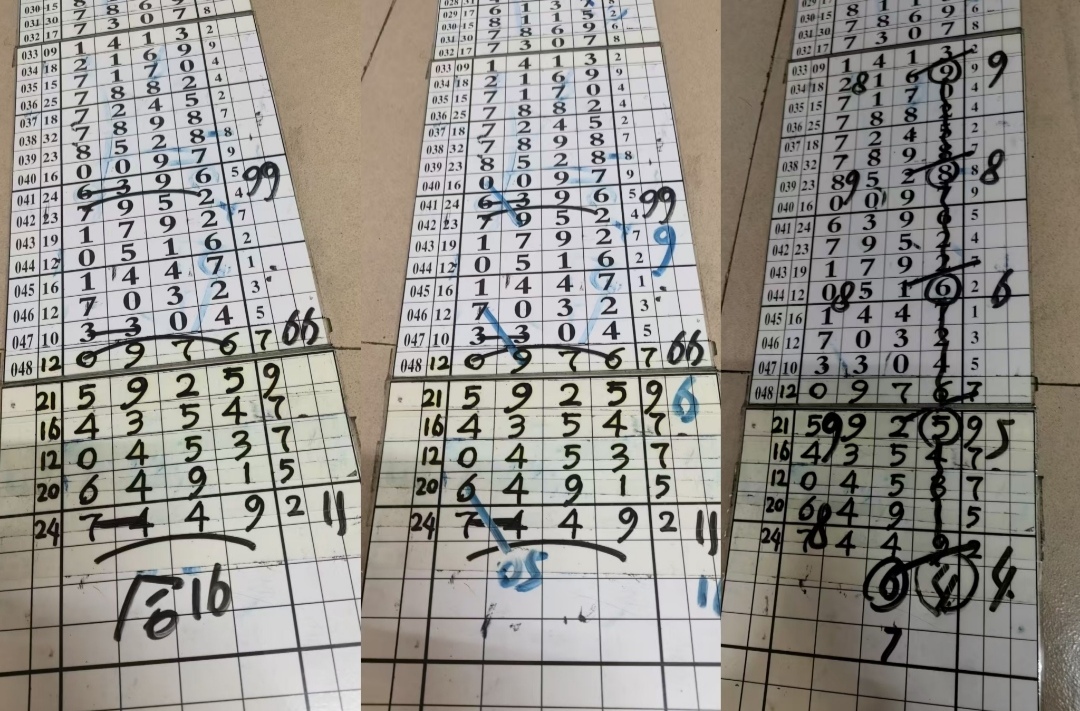 030 15 7 8 6 9 6
032 17 7 3 0 7 8
033 09 1 4 1 3 2
034 18 2 1 6 9 9
035 15 7 1 7 0 4
036 25 7 8 8 2 4
037 18 7 2 4 5 2
038 32 7 8 9 8 7
039 23 8 5 2 8 8
040 16 0 0 9 7 9
041 24 6 3 9 6 5 99
042 23 7 9 5 2 4
043 19 1 7 9 2 7
044 12 0 5 1 6 2
045 16 1 4 4 7 1
046 12 7 0 3 2 3
047 10 3 3 0 4 5
048 12 0 9 7 6 7 66
21 5 9 2 5 9
16 4 3 5 4 7
12 0 4 5 3 7
20 6 4 9 1 5
24 7 4 4 9 2 11
16
029 17 8 1 1 5 2
030 15 7 8 6 9 6
032 17 7 3 0 7 8
033 09 1 4 1 3 2
034 18 2 1 6 9 9
035 15 7 1 7 0 4
036 25 7 8 8 2 4
037 18 7 2 4 5 2
038 32 7 8 9 8 7
039 23 8 5 2 8 8
040 16 0 0 9 7 9
041 24 6 3 9 6 5 99
042 23 7 9 5 2 4
043 19 1 7 9 2 7 9
044 12 0 5 1 6 2
045 16 1 4 4 7 1
046 12 7 0 3 2 3
047 10 3 3 0 4 5
048 12 0 9 7 6 7 66
21 5 9 2 5 9 6
16 4 3 5 4 7
12 0 4 5 3 7
20 6 4 9 1 5
24 7 4 4 9 2 11
05
11
032 17 7 3 0 7 8
033 09 1 4 1 3 2
034 18 2 8 1 6 9 9 9
035 15 7 1 7 0 4
036 25 7 8 8
037 18 7 2 4
038 32 7 8 9
039 23 8 9 5 2 8 8 8
040 16 0 0 9
041 24 6 3 9 6 5
042 23 7 9 5 2 4
043 19 1 7 9 2 7
044 12 0 8 5 1 6 2 6
045 16 1 4 4 7 1
046 12 7 0 3 2 3
047 10 3 3 0 4 5
048 12 0 9 7 6 7
21 5 9 9 2 5 9 5
16 4 3 5 4 7
12 0 4 5 3 7
20 6 4 9 1 5
24 7 8 4 4 9 2
6 4 4
7